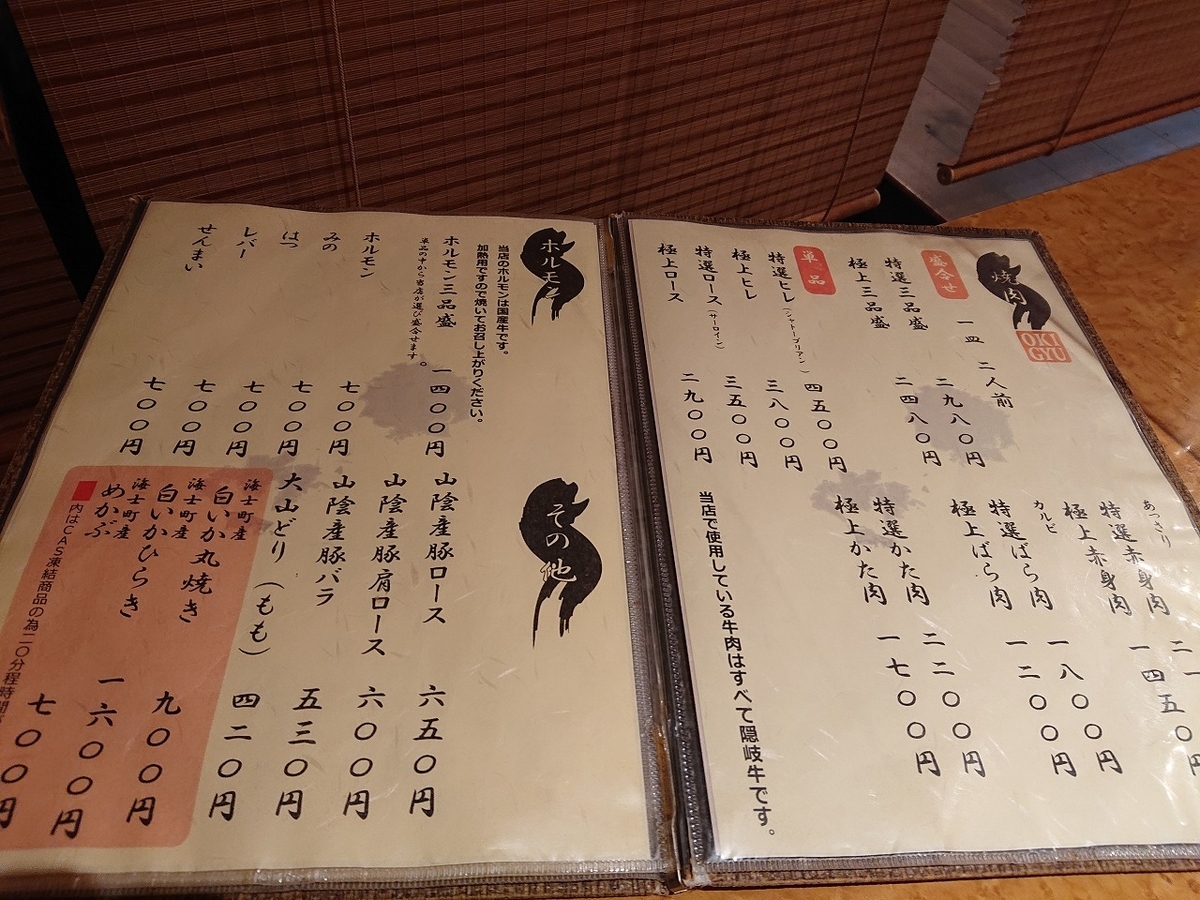 焼肉
OKI
GYU
盛合せ
一皿 二人前
特選三品盛 二九八〇円
極上三品盛 二四八〇円
単品
特選ヒレ(シャトーブリアン) 四五〇〇円
極上ヒレ 三八〇〇円
特選ロース(サーロイン) 三五〇〇円
極上ロース 二九〇〇円
あっさり
特選赤身肉
極上赤身肉 一四五〇円
カルビ
特選ばら肉 一八〇〇円
極上ばら肉 一二〇〇円
特選かた肉 二二〇〇円
極上かた肉 一七〇〇円
当店で使用している牛肉はすべて隠岐牛です。
ホルモン
当店のホルモンは国産牛です。
加熱用ですので焼いてお召し上がりください。
ホルモン三品盛 一四〇〇円
単品の中から当店が選び盛合せます。
ホルモン 七〇〇円
みの 七〇〇円
はつ 七〇〇円
レバー 七〇〇円
せんまい 七〇〇円
その他
山陰産豚ロース 六五〇円
山陰産豚肩ロース 六〇〇円
山陰産豚バラ 五三〇円
大山どり(もも) 四二〇円
海士町産
白いか丸焼き 九〇〇円
海士町産
白いかひらき 一六〇〇円
海士町産
めかぶ 七〇〇円
内はCAS凍結商品の為二〇分程時間